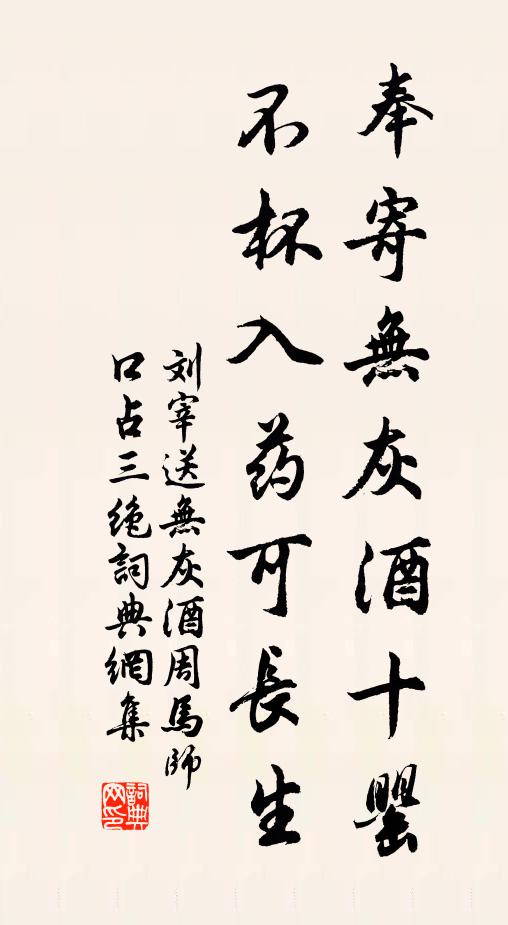 奉寄無灰酒十罌
不杯入药可長生
刘宰送無灰酒周馬師
口占三绝詞典網集
詞典网印